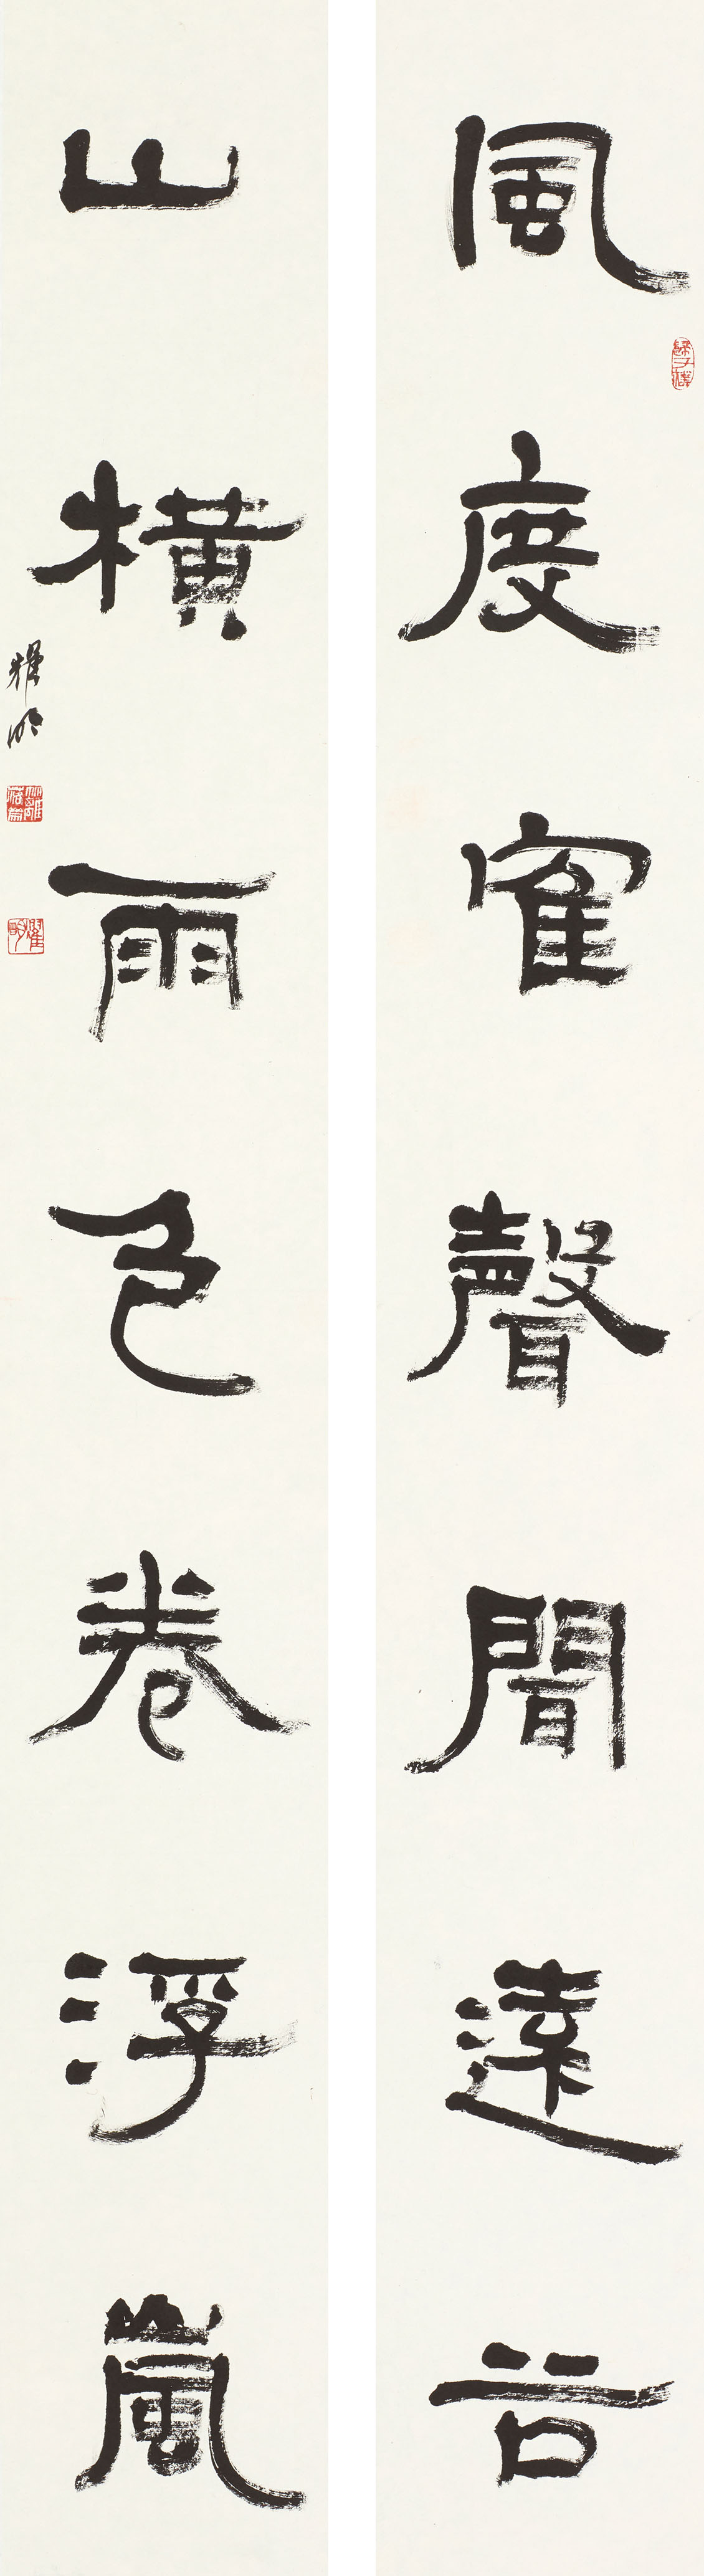 風度寉聲聞遠谷
山橫雨色卷浮嵐
耀明